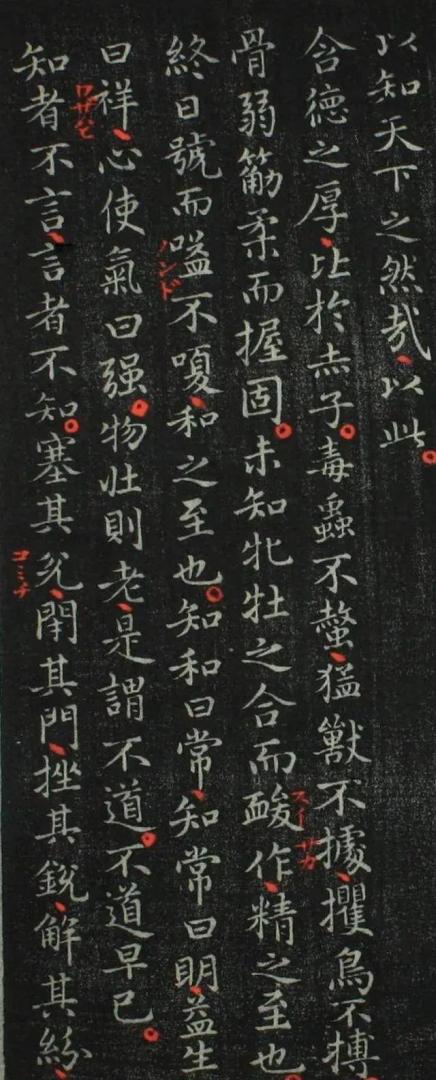 以知天下之然㢤、以此。
含德之厚、比於赤子。毒蟲不螫、猛獸不據、攫鳥不搏、
骨弱筋柔而握固。未知牝牡之合而酸作、精之至也。
終日號而嗌不嗄、和之至也。知和曰常、知常曰明、益生
曰祥、心使氣曰强。物壯則老、是謂不道。不道早已。
知者不言、言者不知。塞其兊、閇其門、挫其銳、解其紛、
スーサカ
ハンド
コミチ